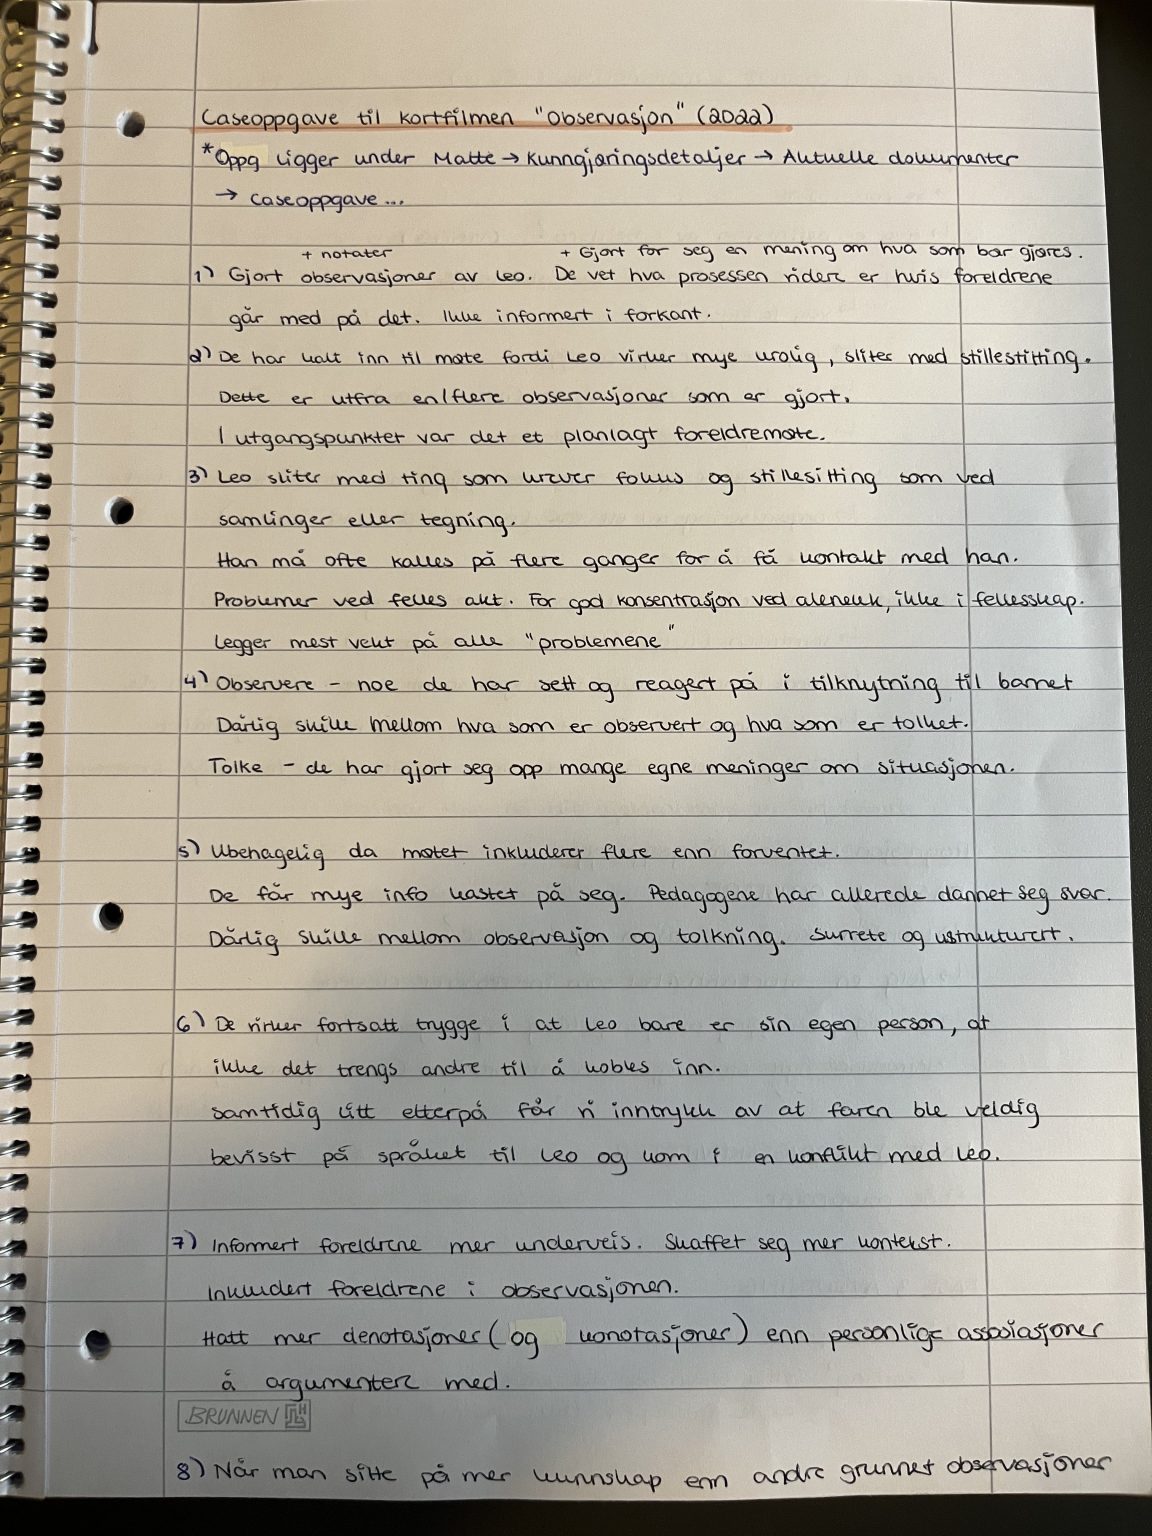 Caseoppgave til kortfilmen "Observasjon" (2022)
*Oppg ligger under Matte → Kunngjøringsdetaljer → Aktuelle dokumenter
→ Caseoppgave...
+ notater + Gjort for seg en mening om hva som bør gjøres.
1) Gjort observasjoner av Leo. De vet hva prosessen videre er hvis foreldrene
går med på det. Ikke informert i forkant.
2) De har kalt inn til møte fordi Leo virker mye urolig, sliter med stillestitting.
Dette er utfra en/flere observasjoner som er gjort.
I utgangspunktet var det et planlagt foreldremøte.
3) Leo sliter med ting som krever fokus og stillesitting som ved
samlinger eller tegning.
Han må ofte kalles på flere ganger for å få kontakt med han.
Problemer ved felles akt. For god konsentrasjon ved alenelek, ikke i fellesskap.
Legger mest vekt på alle "problemene"
4) Observere - noe de har sett og reagert på i tilknytning til barnet
Dårlig skille mellom hva som er observert og hva som er tolket.
Tolke - de har gjort seg opp mange egne meninger om situasjonen.
5) Ubehagelig da møtet inkluderer flere enn forventet.
De får mye info kastet på seg. Pedagogene har allerede dannet seg svar.
Dårlig skille mellom observasjon og tolkning. Surrete og ustrukturert.
6) De virker fortsatt trygge i at Leo bare er sin egen person, at
ikke det trengs andre til å kobles inn.
Samtidig litt etterpå får vi inntrykk av at faren ble veldig
bevisst på språket til Leo og kom i en konflikt med Leo.
7) Informert foreldrene mer underveis. Skaffet seg mer kontekst.
Inkludert foreldrene i observasjonen.
Hatt mer denotasjoner (og konotasjoner) enn personlige assosiasjoner
å argumentere med.
BRUNNEN
8) Når man sitte på mer kunnskap enn andre grunnet observasjoner